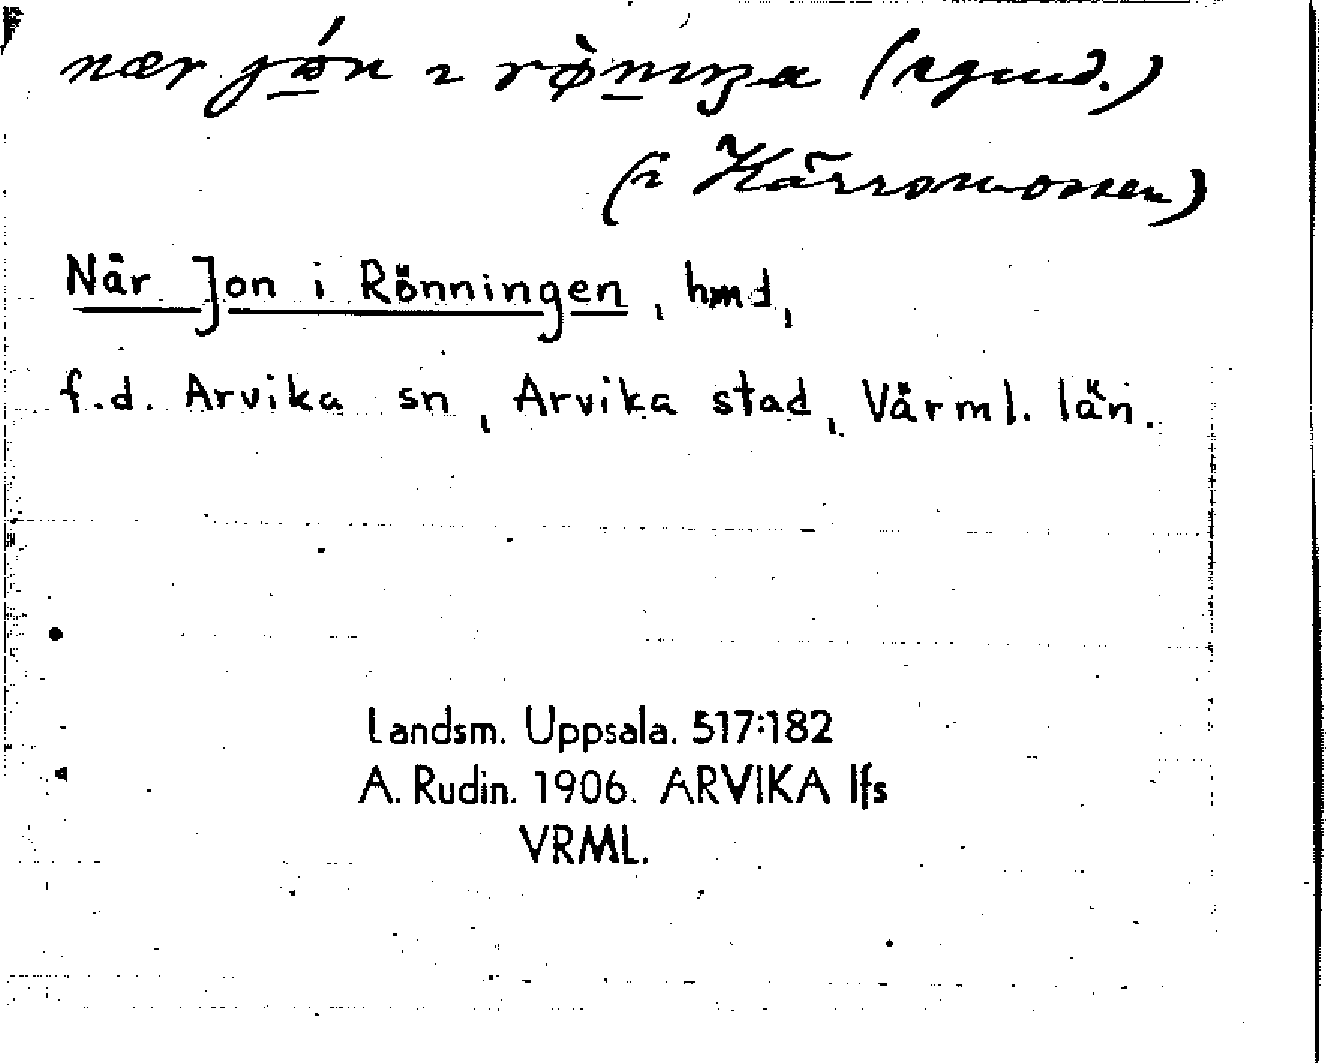 nær jón i rø̀niŋa (ägend.)
(i Kärrsmossen)
När Jon i Rönningen, hmd,
f.d. Arvika sn, Arvika stad, Värml. län.
Landsm. Uppsala. 517:182
A. Rudin. 1906. ARVIKA lfs
VRML.